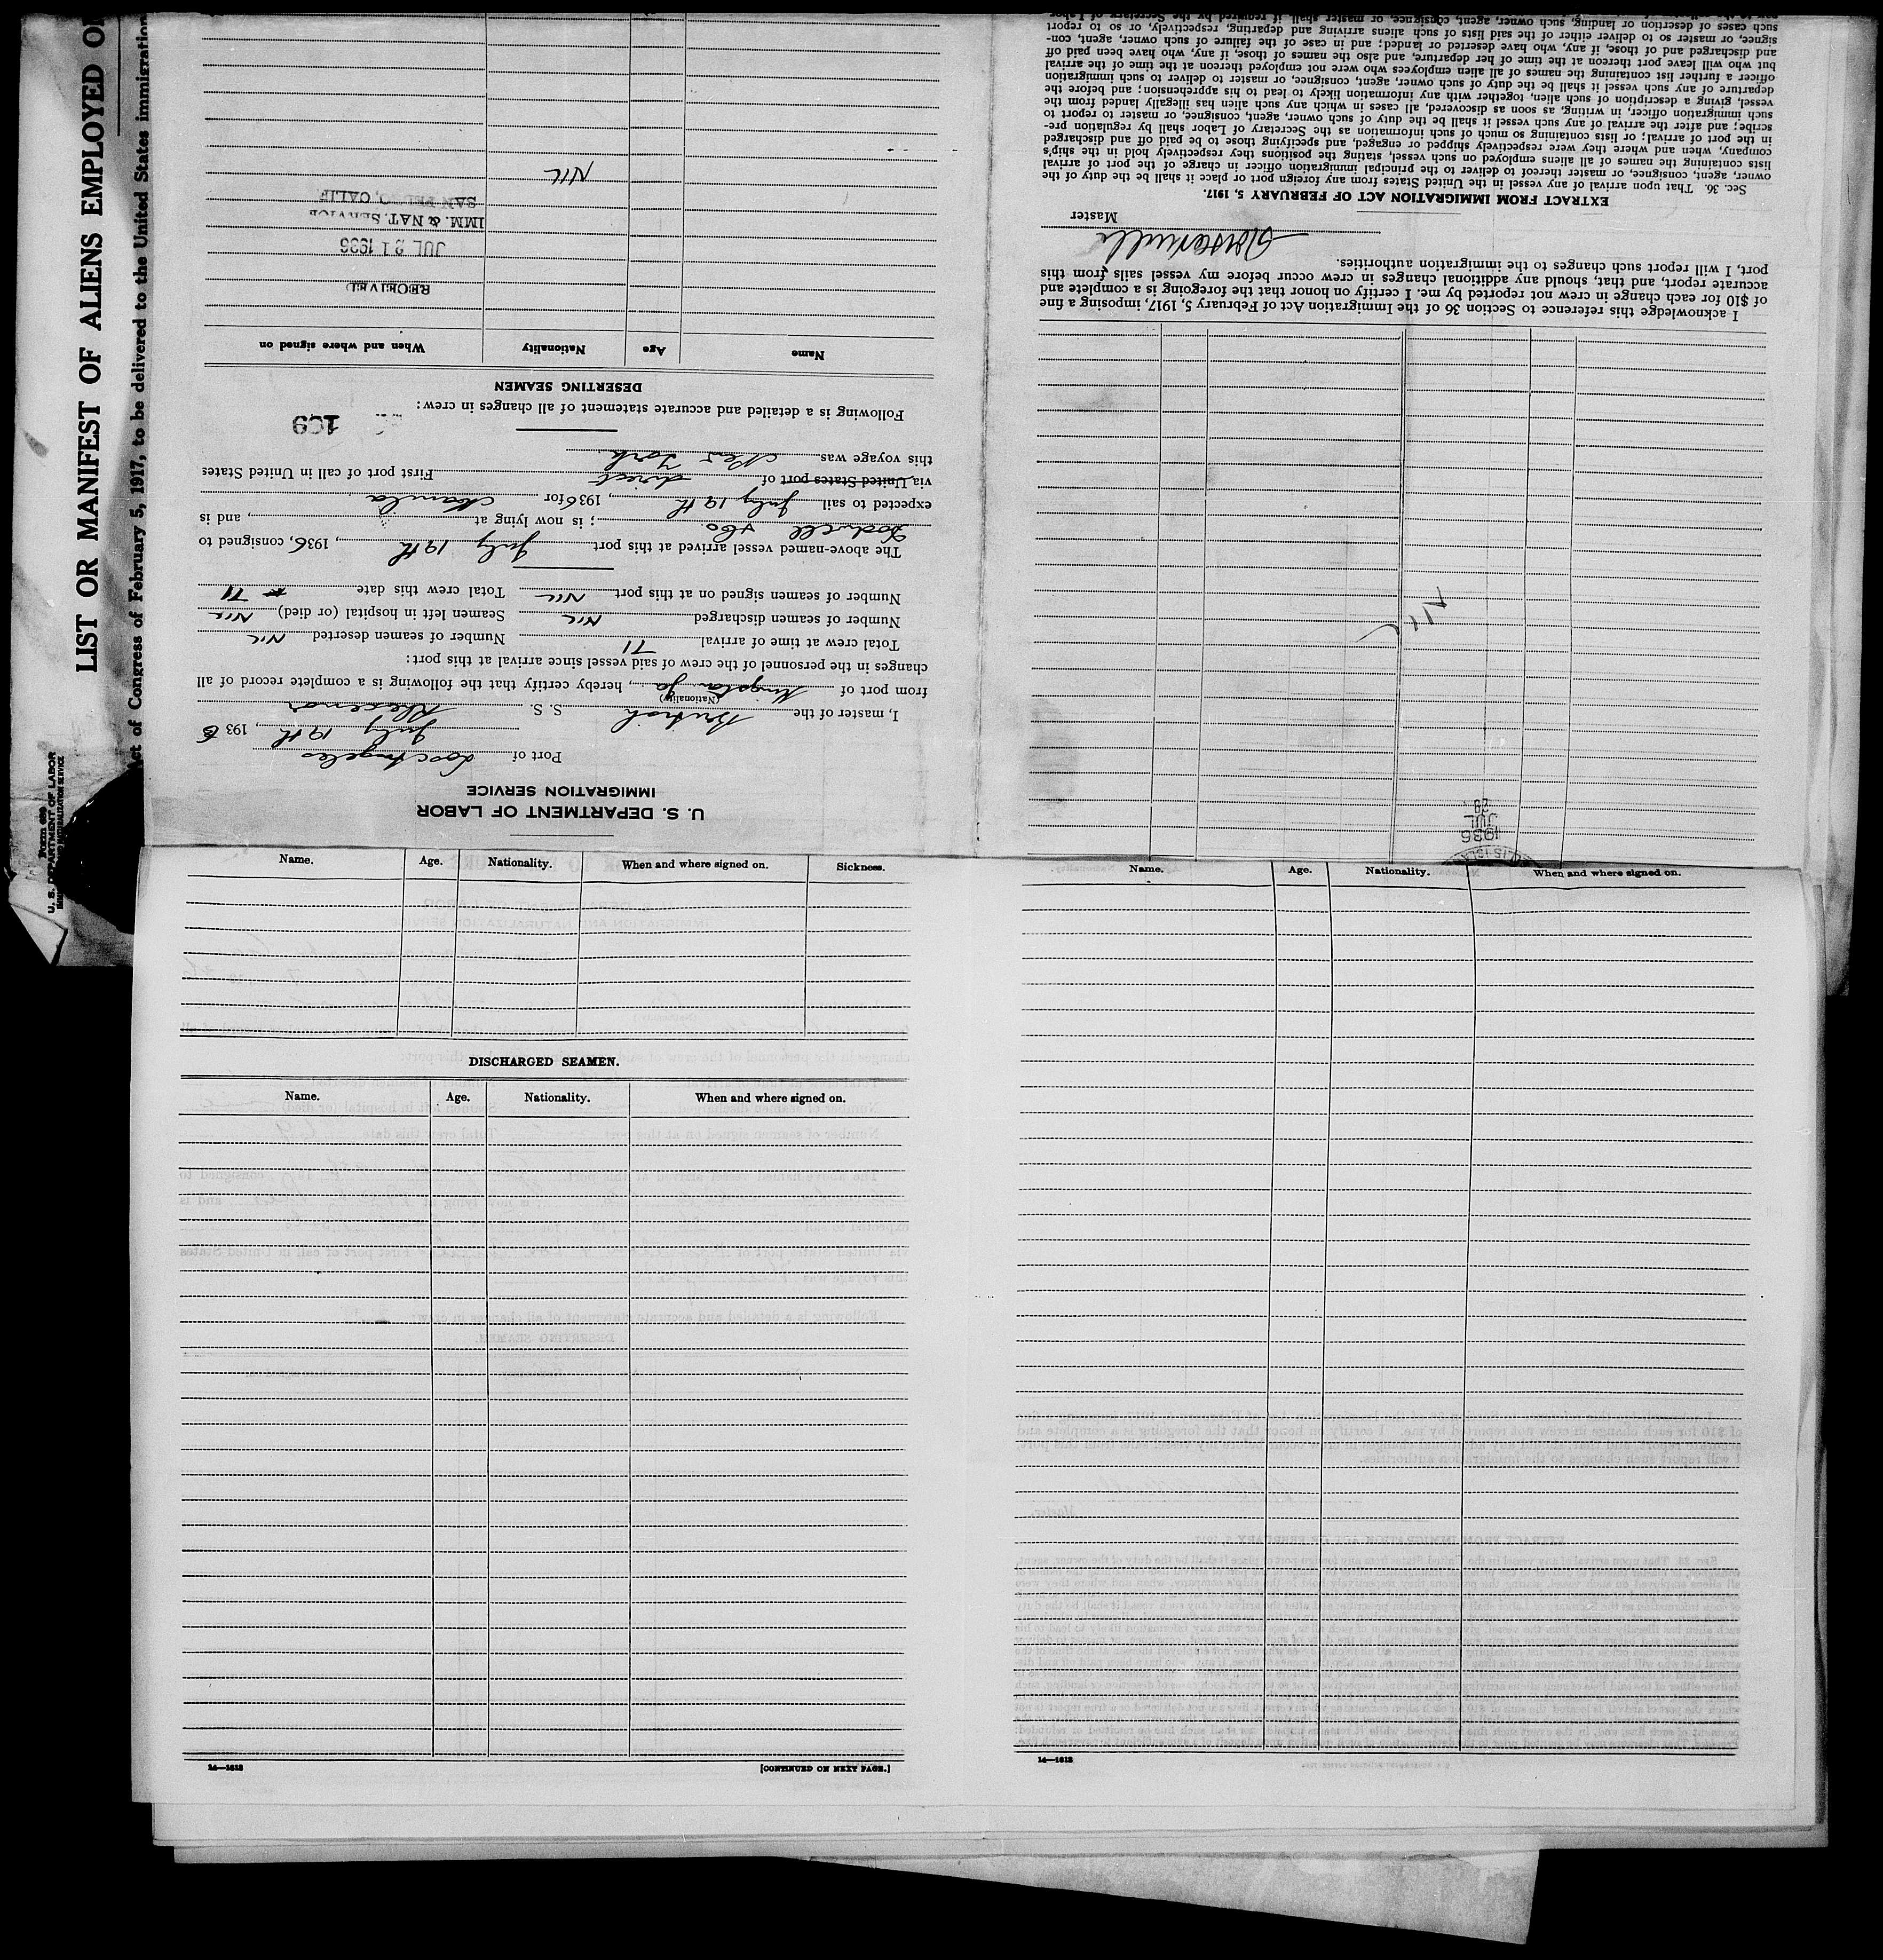 LIST OR MANIFEST OF ALIENS EMPLOYED O
Act of Congress of February 5, 1917, to be delivered to the United States immigration
Form 680
U. S. DEPARTMENT OF LABOR
U. S. DEPARTMENT OF LABOR
IMMIGRATION SERVICE
Port of Los Angeles
July 19th, 1936
I, master of the British S. S.
(Nationality)
from port of Kingston Ja, hereby certify that the following is a complete record of all
changes in the personnel of the crew of said vessel since arrival at this port:
Total crew at time of arrival 71 Number of seamen deserted NIL
Number of seamen discharged NIL Seamen left in hospital (or died) NIL
Number of seamen signed on at this port NIL Total crew this date 71
The above-named vessel arrived at this port July 19th, 1936, consigned to
Dodwell & Co.; is now lying at , and is
expected to sail July 19th, 1936 for Manila
via United States port of direct First port of call in United States
this voyage was New York.
Following is a detailed and accurate statement of all changes in crew:
109
DESERTING SEAMEN
Name Age Nationality When and where signed on
RECEIVED
JUL 21 1936
IMM. & NAT. SERVICE
SAN PEDRO, CALIF.
NIL
1936
JUL
29
Nil
I acknowledge this reference to Section 36 of the Immigration Act of February 5, 1917, imposing a fine
of $10 for each change in crew not reported by me. I certify on honor that the foregoing is a complete and
accurate report, and that, should any additional changes in crew occur before my vessel sails from this
port, I will report such changes to the immigration authorities.
Master
EXTRACT FROM IMMIGRATION ACT OF FEBRUARY 5, 1917.
Sec. 36. That upon arrival of any vessel in the United States from any foreign port or place it shall be the duty of the
owner, agent, consignee, or master thereof to deliver to the principal immigration officer in charge of the port of arrival
lists containing the names of all aliens employed on such vessel, stating the positions they respectively hold in the ship's
company, when and where they were respectively shipped or engaged, and specifying those to be paid off and discharged
in the port of arrival; or lists containing so much of such information as the Secretary of Labor shall by regulation pre-
scribe; and after the arrival of any such vessel it shall be the duty of such owner, agent, consignee, or master to report to
such immigration officer, in writing, as soon as discovered, all cases in which any such alien has illegally landed from the
vessel, giving a description of such alien, together with any information likely to lead to his apprehension; and before the
departure of any such vessel it shall be the duty of such owner, agent, consignee, or master to deliver to such immigration
officer a further list containing the names of all alien employees who were not employed thereon at the time of the arrival
but who will leave port thereon at the time of her departure, and also the names of those, if any, who have been paid off
and discharged and of those, if any, who have deserted or landed; and in case of the failure of such owner, agent, con-
signee, or master so to deliver either of the said lists of such aliens arriving and departing, respectively, or so to report
such cases of desertion or landing, such owner, agent, consignee, or master shall, if required by the Secretary of Labor
Name. Age. Nationality. When and where signed on. Sickness.
DISCHARGED SEAMEN.
Name. Age. Nationality. When and where signed on.
14—1613
[CONTINUED ON NEXT PAGE.]
Name. Age. Nationality. When and where signed on.
14—1613